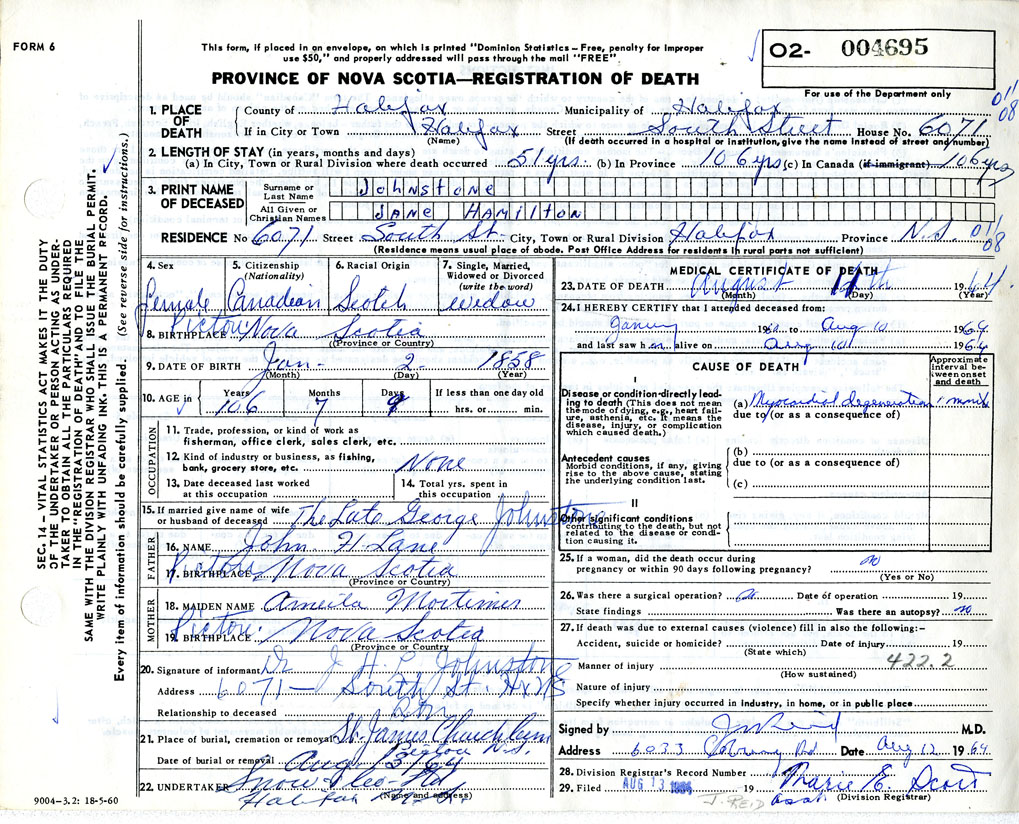 FORM 6
This form, if placed in an envelope, on which is printed "Dominion Statistics – Free, penalty for improper
use $50," and properly addressed will pass through the mail "FREE"
PROVINCE OF NOVA SCOTIA—REGISTRATION OF DEATH
O2- 004695
For use of the Department only
01/08
1. PLACE OF DEATH
County of Halifax Municipality of Halifax
If in City or Town Halifax Street South Street House No. 6071
(Name) (If death occurred in a hospital or institution, give the name instead of street and number)
2. LENGTH OF STAY (in years, months and days)
(a) In City, Town or Rural Division where death occurred 51 yrs. (b) In Province 106 yrs (c) In Canada (if immigrant) 106 yrs
3. PRINT NAME OF DECEASED
Surname or Last Name JOHNSTONE
All Given or Christian Names JANE HAMILTON
RESIDENCE No 6071 Street South St. City, Town or Rural Division Halifax Province N.S. 01/08
(Residence means usual place of abode. Post Office Address for residents in rural parts not sufficient)
SEC. 14 – VITAL STATISTICS ACT MAKES IT THE DUTY
OF THE UNDERTAKER OR PERSON ACTING AS UNDER-
TAKER TO OBTAIN ALL THE PARTICULARS REQUIRED
IN THE "REGISTRATION OF DEATH" AND TO FILE THE
SAME WITH THE DIVISION REGISTRAR WHO SHALL ISSUE THE BURIAL PERMIT.
WRITE PLAINLY WITH UNFADING INK. THIS IS A PERMANENT RECORD.
Every item of information should be carefully supplied. (See reverse side for instructions.)
4. Sex Female
5. Citizenship (Nationality) Canadian
6. Racial Origin Scotch
7. Single, Married, Widowed or Divorced (write the word) Widow
8. BIRTHPLACE Pictou: Nova Scotia
(Province or Country)
9. DATE OF BIRTH Jan. 2 1858
(Month) (Day) (Year)
10. AGE in Years 106 Months 7 Days 9 If less than one day old
hrs. or min.
OCCUPATION
11. Trade, profession, or kind of work as
fisherman, office clerk, sales clerk, etc.
12. Kind of industry or business, as fishing,
bank, grocery store, etc. None
13. Date deceased last worked
at this occupation
14. Total yrs. spent in
this occupation
15. If married give name of wife
or husband of deceased The Late George Johnstone
FATHER
16. NAME John H Lane
17. BIRTHPLACE Pictou: Nova Scotia
(Province or Country)
MOTHER
18. MAIDEN NAME Ameila Mortimer
19. BIRTHPLACE Pictou: Nova Scotia
(Province or Country)
20. Signature of informant Dr J. H. L. Johnstone
Address 6071 – South St. Hx NS
Relationship to deceased Son
21. Place of burial, cremation or removal St. James Church Cem
Pictou N.S.
Date of burial or removal Aug 13/64
22. UNDERTAKER Snow & Co Ltd
Halifax N.S.
(Name and address)
9004-3.2: 18-5-60
MEDICAL CERTIFICATE OF DEATH
23. DATE OF DEATH August 11th 1964.
(Month) (Day) (Year)
24. I HEREBY CERTIFY that I attended deceased from:
to Aug 10 1964
and last saw her alive on Aug 10 1964
CAUSE OF DEATH
Approximate interval between onset and death
I
Disease or condition directly lead-
ing to death (This does not mean
the mode of dying, e.g., heart fail-
ure, asthenia, etc. It means the
disease, injury, or complication
which caused death.)
(a) Myocardial degeneration
due to (or as a consequence of)
Antecedent causes
Morbid conditions, if any, giving
rise to the above cause, stating
the underlying condition last.
(b)
due to (or as a consequence of)
(c)
II
Other significant conditions
contributing to the death, but not
related to the disease or condi-
tion causing it.
25. If a woman, did the death occur during
pregnancy or within 90 days following pregnancy? no
(Yes or No)
26. Was there a surgical operation? no Date of operation 19
State findings Was there an autopsy? no
27. If death was due to external causes (violence) fill in also the following:–
Accident, suicide or homicide? Date of injury 19
(State which)
Manner of injury 422.2
(How sustained)
Nature of injury
Specify whether injury occurred in industry, in home, or in public place
Signed by M.D.
Address 6033 Coburg Rd Date Aug 12 1964
28. Division Registrar's Record Number
29. Filed AUG 13 1964 Marie E. Scott
J. REID Asst. (Division Registrar)